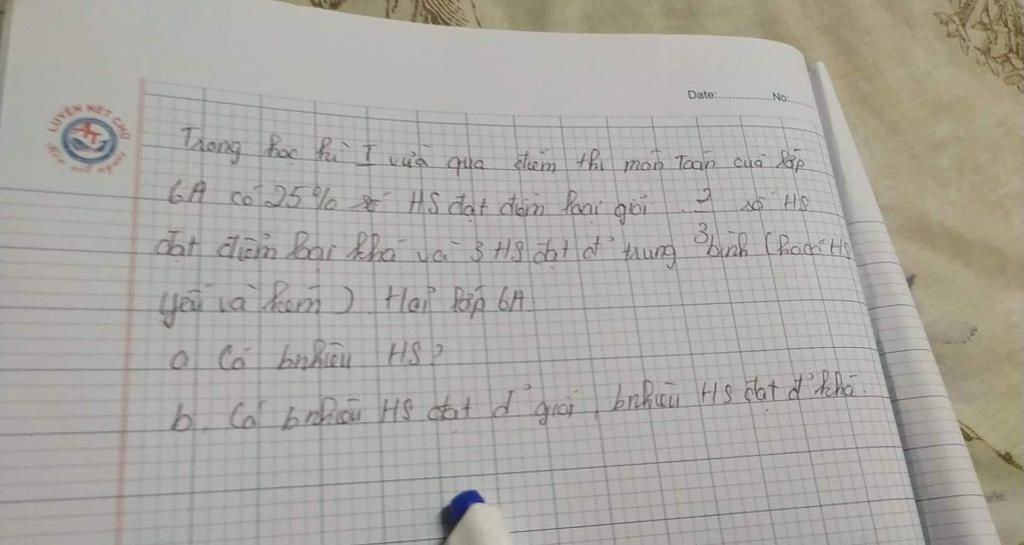 Date:..............No:
LUYỆN NÉT CHỮ
Trong học kì I vừa qua điểm thi môn Toán của lớp
6A có 25% số HS đạt điểm loại giỏi. 2/3 số HS
đạt điểm loại khá và 3 HS đạt đ' trung bình (k có HS
yếu và kém). Hỏi lớp 6A
a. Có bnhiêu HS?
b. Có bnhiêu HS đạt đ' giỏi, bnhiêu HS đạt đ' khá.